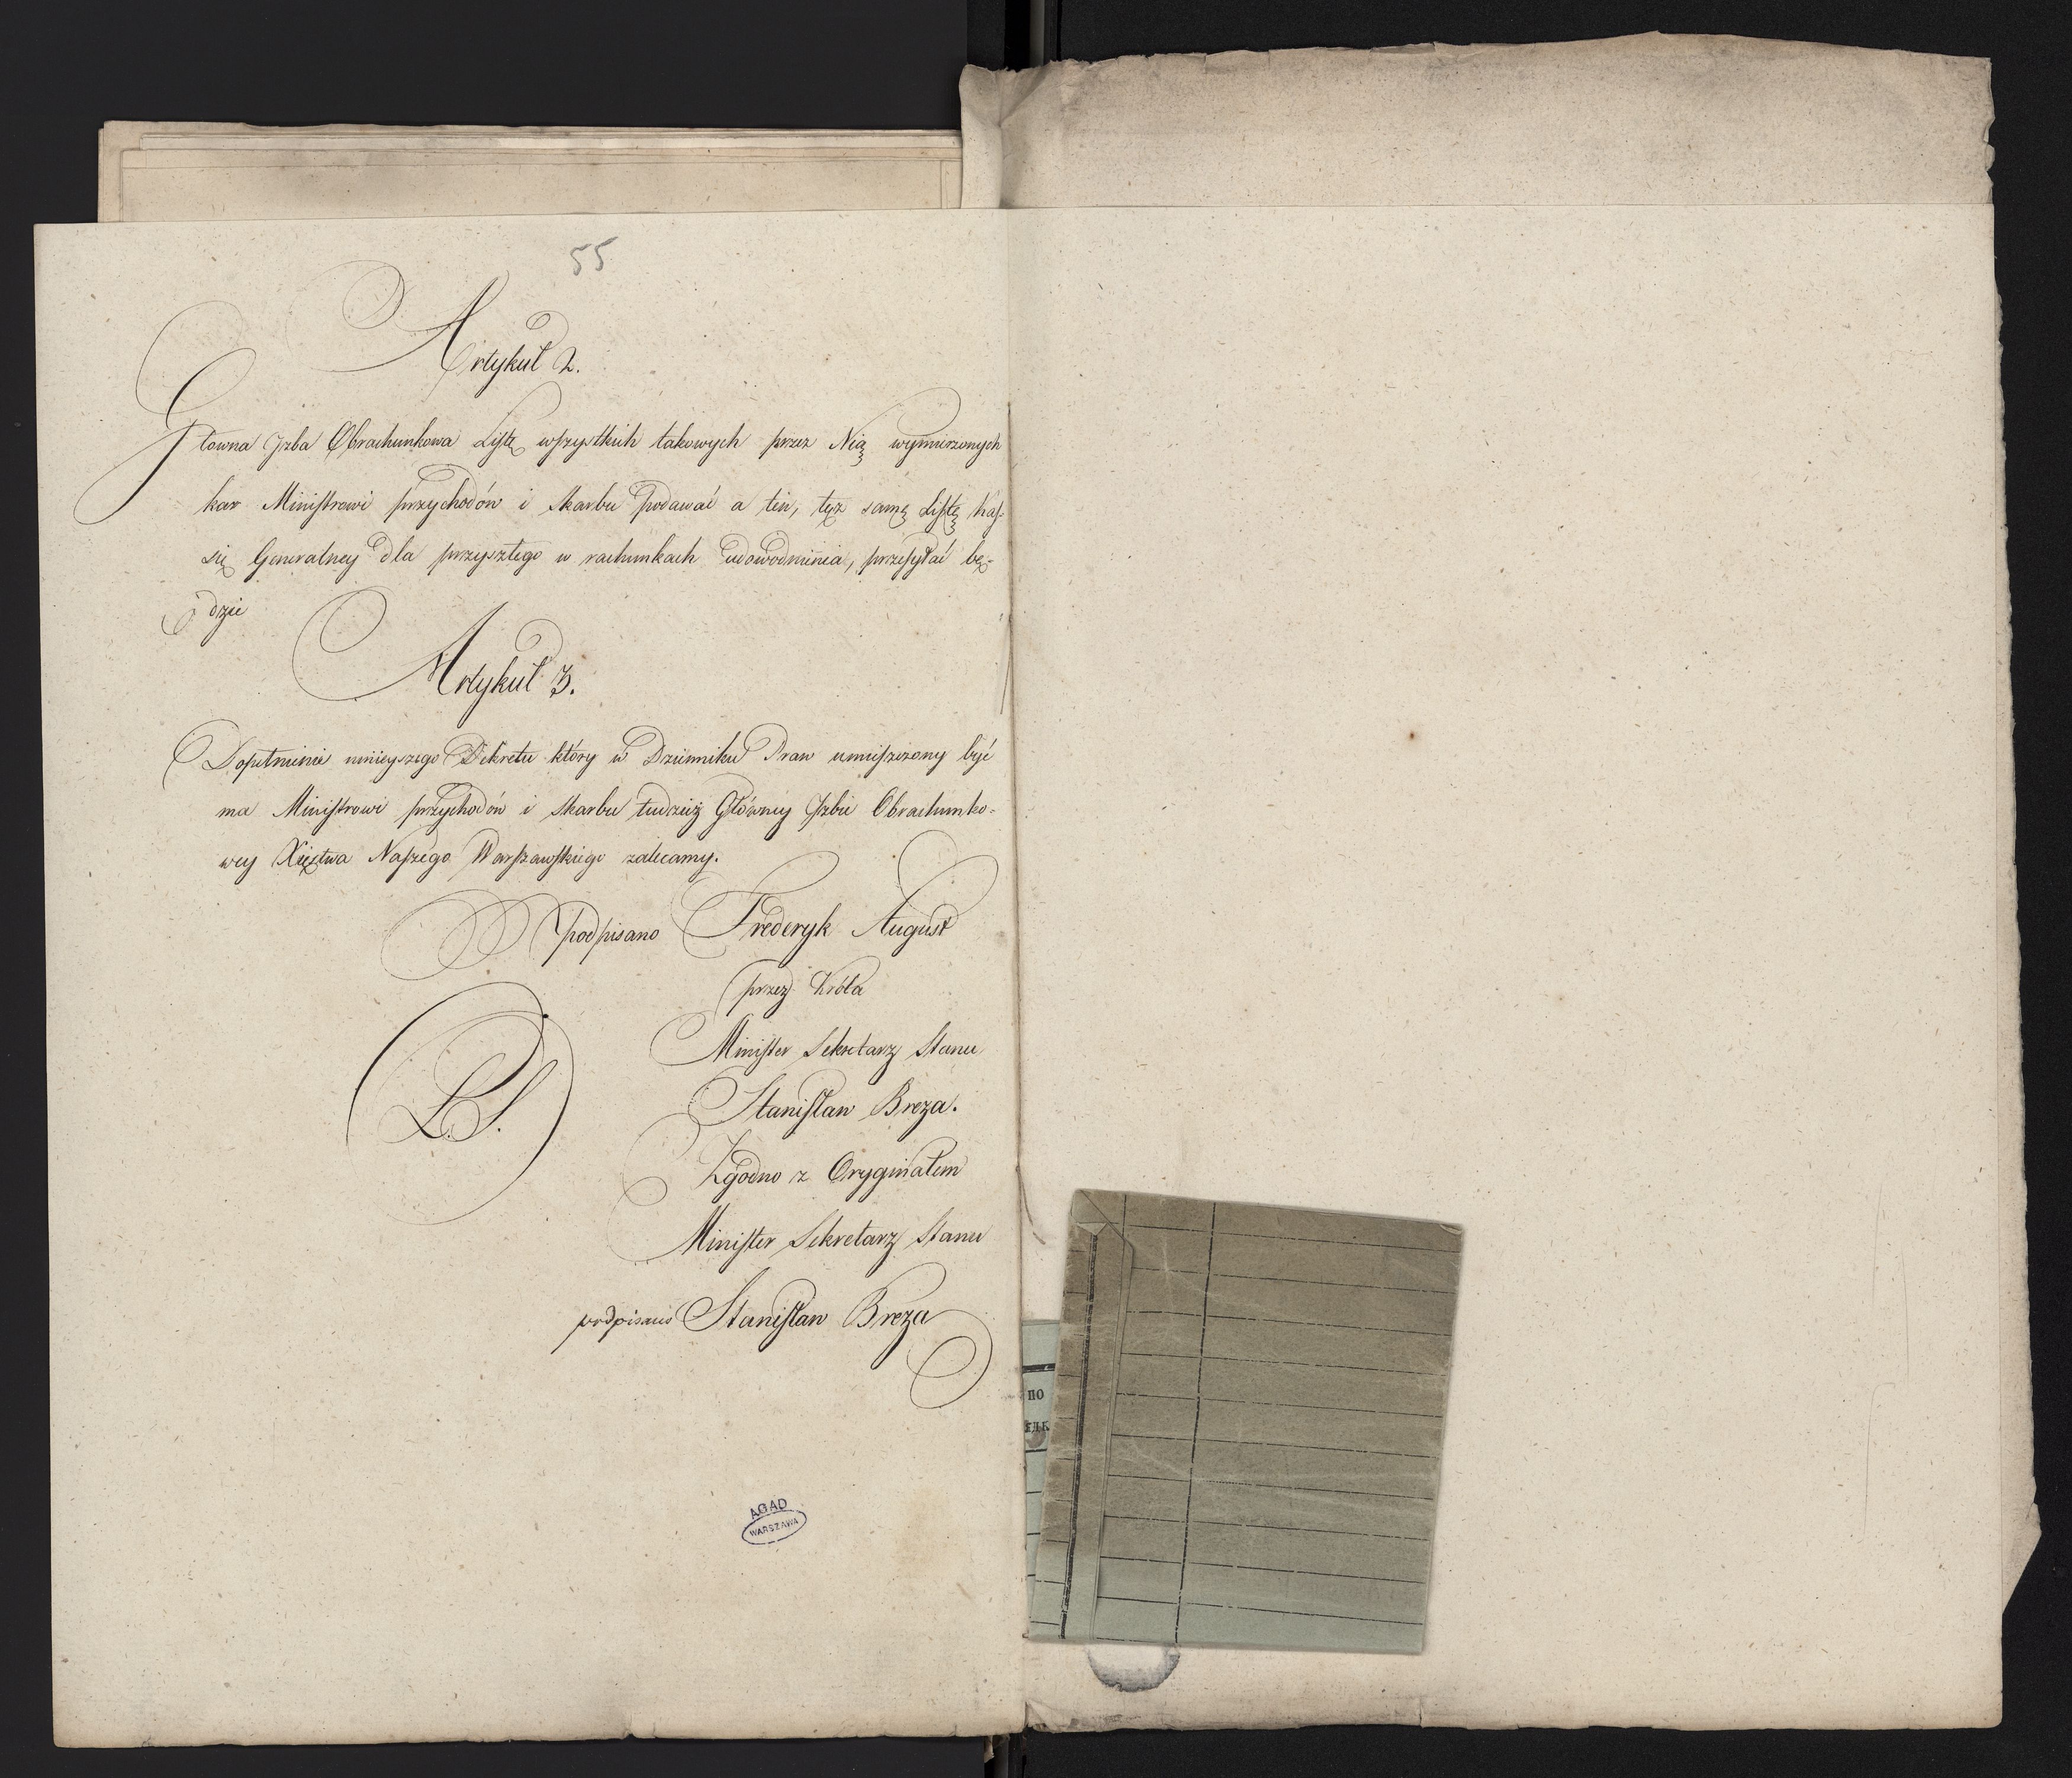 55
Artykuł 2.
Główna Jzba Obrachunkowa Listę wszystkich takowych przez Nię wymierzonych
kar Ministrowi przychodów i skarbu podawać a ten, tęż samę Listę Kas-
się Generalney dla przyszłego w rachunkach udowodnienia, przesyłać bę-
dzie
Artykuł 3.
Dopełnienie ninieyszego Dekretu który w Dzienniku Praw umieszczony być
ma Ministrowi przychodów i skarbu tudzież Główney Jzbie Obrachunko-
wey Xięstwa Naszego Warszawskiego zalecamy.
podpisano Frederyk August
przez Króla
Minister Sekretarz Stanu
L.S.
Stanisław Breza.
Zgodno z Oryginałem
Minister Sekretarz Stanu
podpisano Stanisław Breza
AGAD
WARSZAWA
по